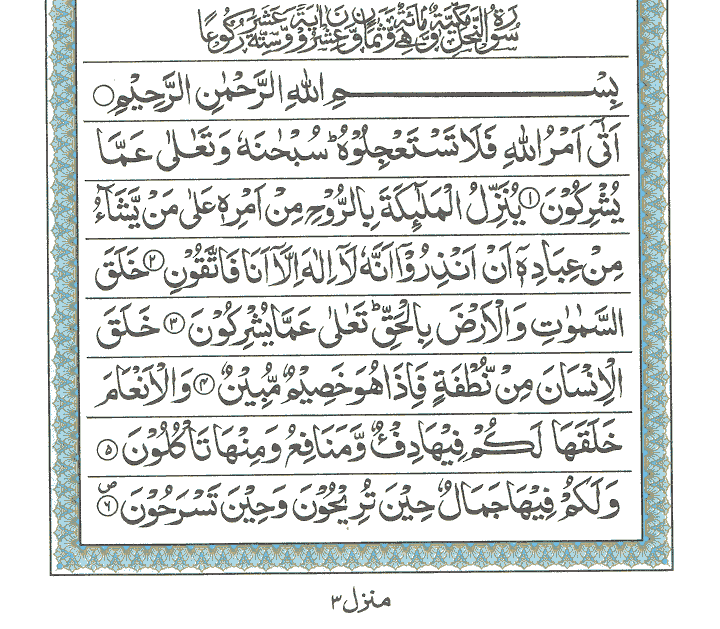 سُوْرَةُ النَّحْلِ مَكِّيَّةٌ وَّهِيَ مِائَةٌ وَّثَمَانٍ وَّعِشْرُوْنَ اٰيَةً وَّسِتَّةَ عَشَرَ رُكُوْعًا
بِسْمِ اللهِ الرَّحْمٰنِ الرَّحِيْمِ ○
اَتٰۤى اَمْرُ اللهِ فَلَا تَسْتَعْجِلُوْهُ ؕ سُبْحٰنَهٗ وَتَعٰلٰى عَمَّا
يُشْرِكُوْنَ ۝١ يُنَزِّلُ الْمَلٰٓئِكَةَ بِالرُّوْحِ مِنْ اَمْرِهٖ عَلٰى مَنْ يَّشَآءُ
مِنْ عِبَادِهٖۤ اَنْ اَنْذِرُوْۤا اَنَّهٗ لَاۤ اِلٰهَ اِلَّاۤ اَنَا فَاتَّقُوْنِ ۝٢ خَلَقَ
السَّمٰوٰتِ وَالْاَرْضَ بِالْحَقِّ ؕ تَعٰلٰى عَمَّا يُشْرِكُوْنَ ۝٣ خَلَقَ
الْاِنْسَانَ مِنْ نُّطْفَةٍ فَاِذَا هُوَ خَصِيْمٌ مُّبِيْنٌ ۝٤ وَالْاَنْعَامَ
خَلَقَهَا لَكُمْ فِيْهَا دِفْءٌ وَّمَنَافِعُ وَمِنْهَا تَاْكُلُوْنَ ۝٥
وَلَكُمْ فِيْهَا جَمَالٌ حِيْنَ تُرِيْحُوْنَ وَحِيْنَ تَسْرَحُوْنَ ۝٦ ص
منزل ٣